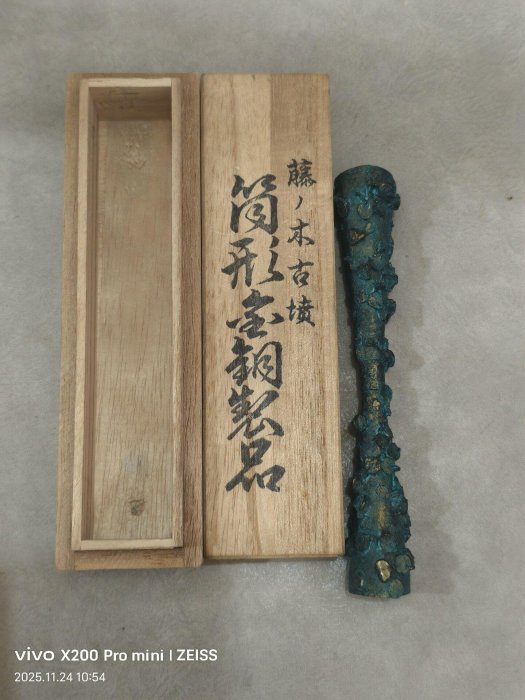 藤ノ木古墳
筒形金銅製品
vivo X200 Pro mini | ZEISS
2025.11.24 10:54